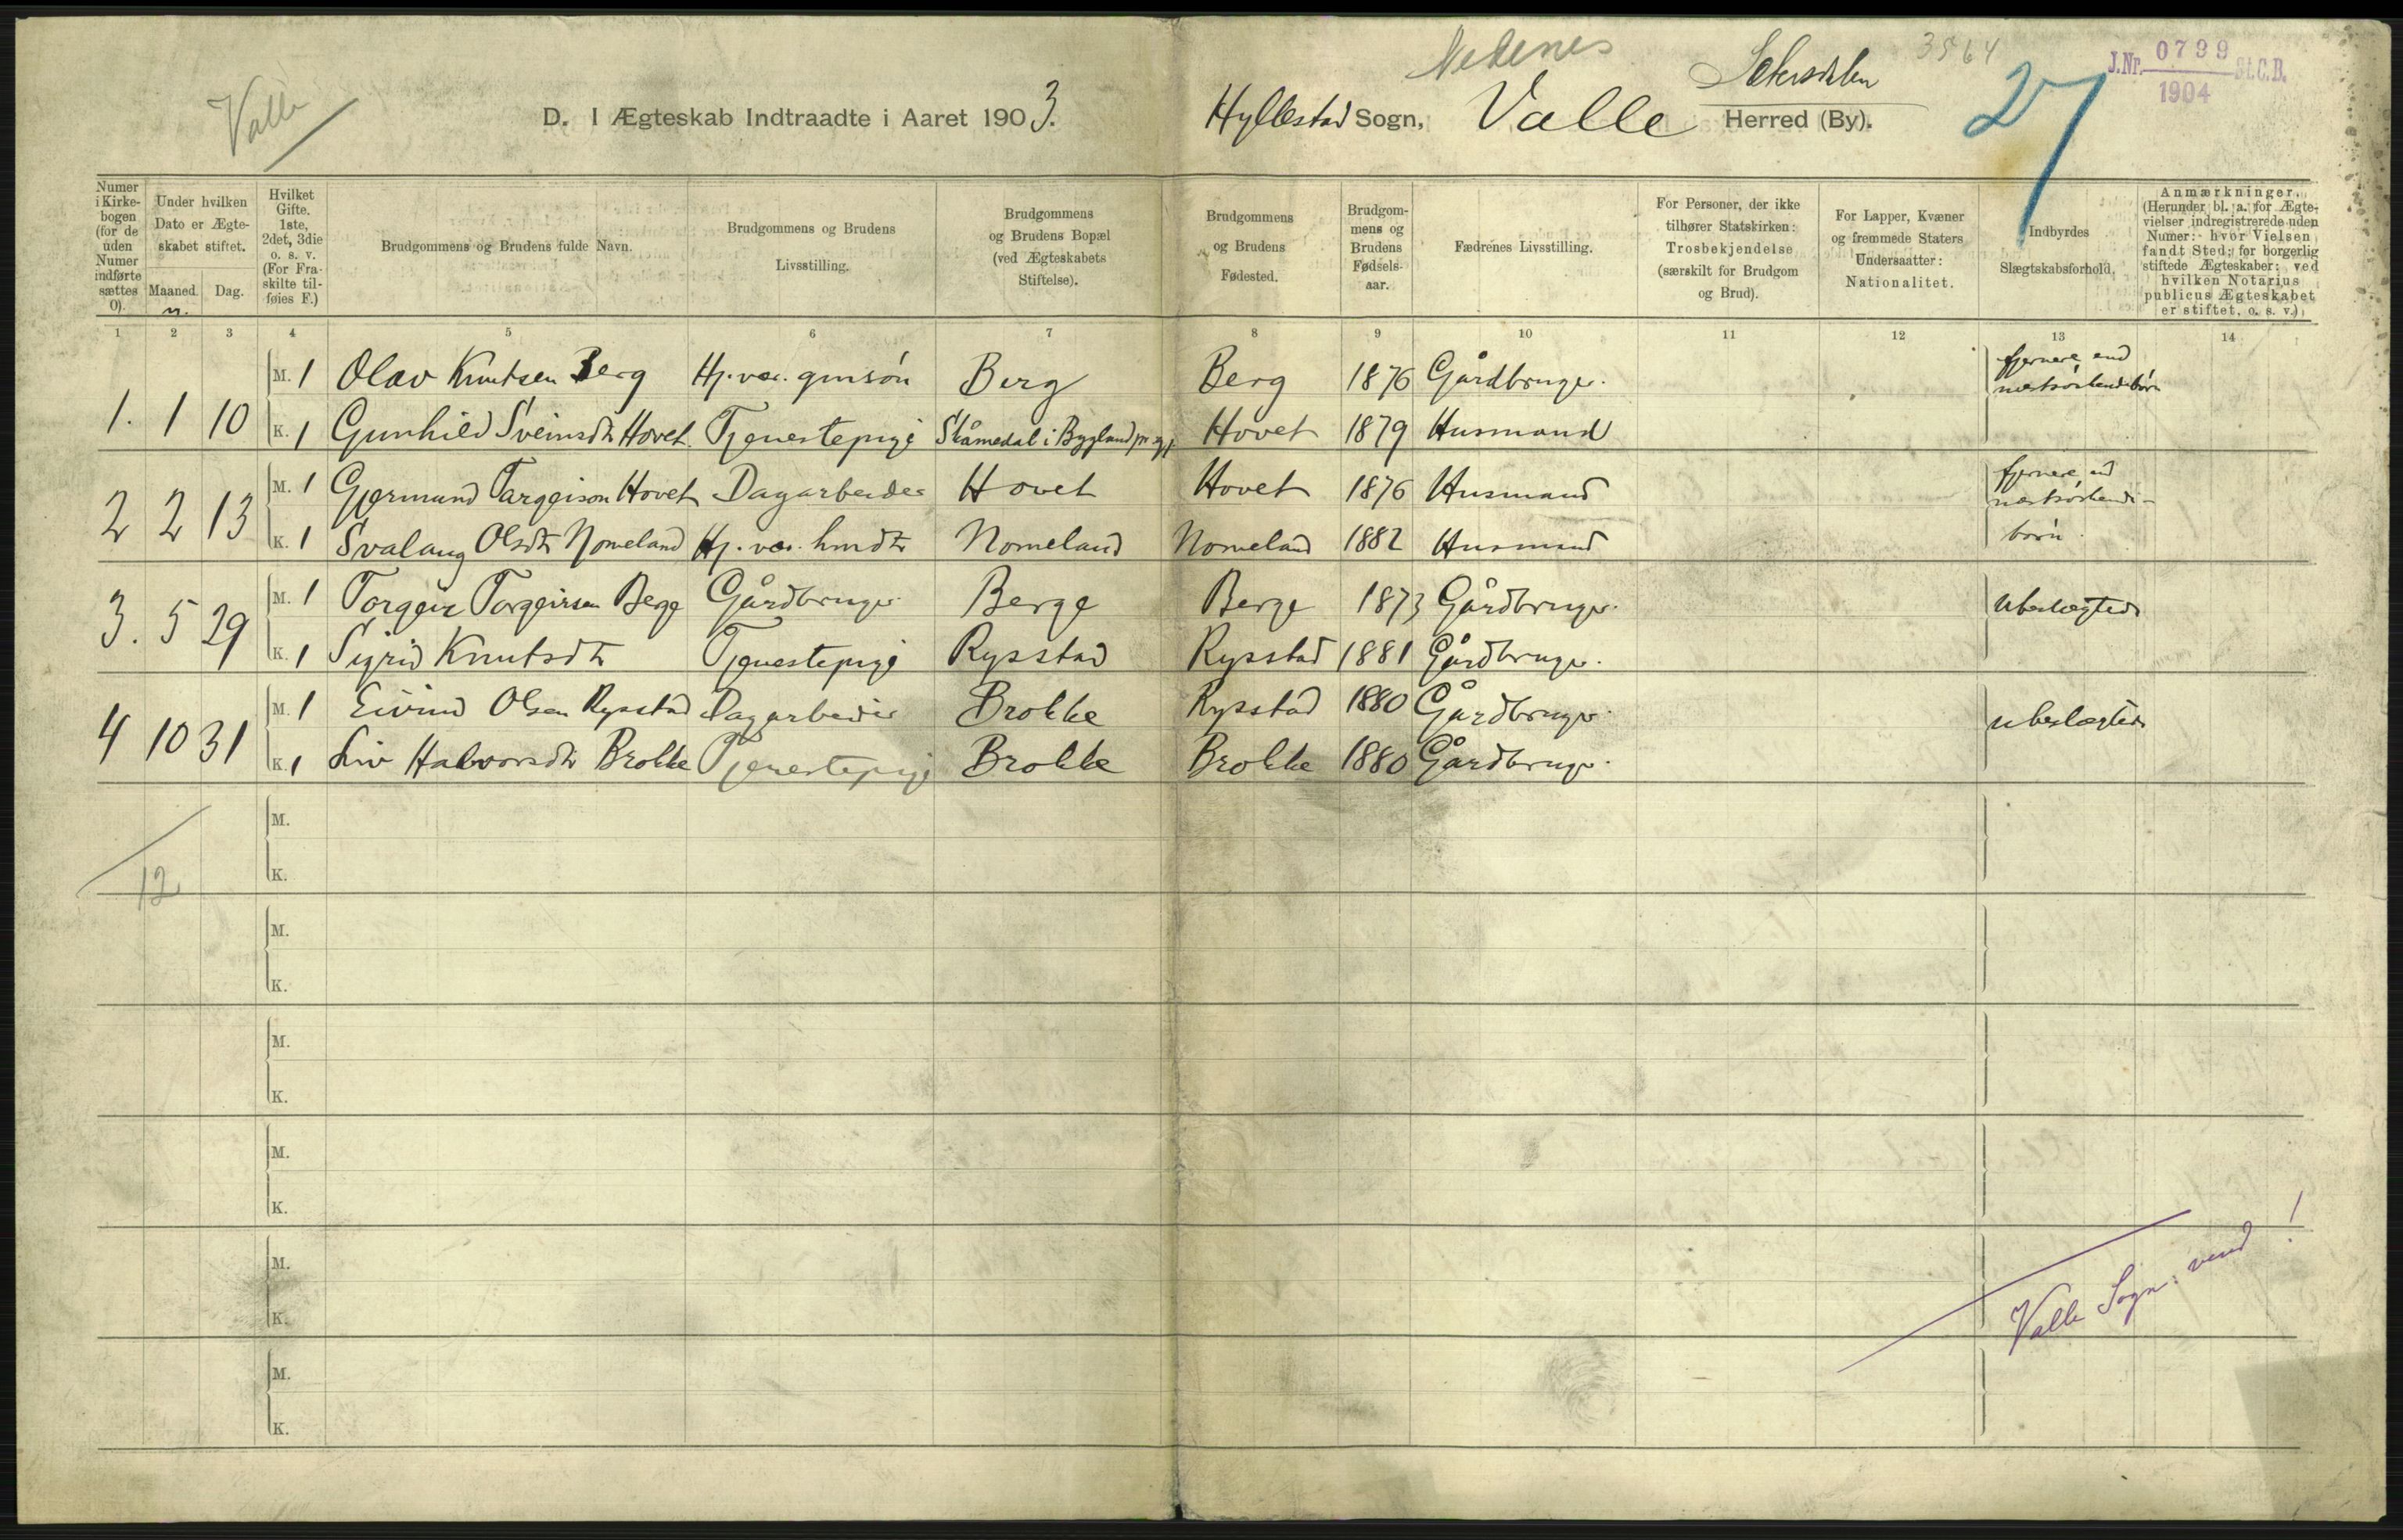 Nedenes
Sætersdalen
3564
J.Nr. 0799 St.C.B.
1904
27
Valle
D. I Ægteskab Indtraadte i Aaret 1903.
Hyllestad Sogn, Valle Herred (By).
Numer i Kirkebogen (for de uden Numer indførte sættes 0).
Under hvilken Dato er Ægteskabet stiftet.
Maaned. Dag.
Hvilket Gifte. 1ste, 2det, 3die o. s. v. (For Fraskilte tilføies F.)
Brudgommens og Brudens fulde Navn.
Brudgommens og Brudens Livsstilling.
Brudgommens og Brudens Bopæl (ved Ægteskabets Stiftelse).
Brudgommens og Brudens Fødested.
Brudgommens og Brudens Fødselsaar.
Fædrenes Livsstilling.
For Personer, der ikke tilhører Statskirken: Trosbekjendelse (særskilt for Brudgom og Brud).
For Lapper, Kvæner og fremmede Staters Undersaatter: Nationalitet.
Indbyrdes Slægtskabsforhold.
Anmærkninger. (Herunder bl. a. for Ægtevielser indregistrerede uden Numer: hvor Vielsen fandt Sted; for borgerlig stiftede Ægteskaber: ved hvilken Notarius publicus Ægteskabet er stiftet, o. s. v.)
1 2 3 4 5 6 7 8 9 10 11 12 13 14
M. 1 Olav Knutsen Berg Hj. vær. gmsøn Berg Berg 1876 Gårdbruger. fjernere end næstsøskendebørn
1. 1 10
K. 1 Gunhild Sveinsdtr Hovet. Tjenestepige Skåmedal i Bygland Hovet 1879 Husmand
M. 1 Gjermund Targeison Hovet Dagarbeider Hovet Hovet 1876 Husmand fjernere end næstsøskendebørn
2 2 13
K. 1 Svalaug Olsdtr Nomeland Hj. vær. hmdtr Nomeland Nomeland 1882 Husmand
M. 1 Torgeir Torgeirsen Berge Gårdbruger Berge Berge 1873 Gårdbruger. Ubeslægtede
3. 5 29
K. 1 Sigrid Knutsdtr Tjenestepige Rysstad Rysstad 1881 Gårdbruger.
M. 1 Eivind Olsen Rysstad Dagarbeider Brokke Rysstad 1880 Gårdbruger. ubeslægtede
4 10 31
K. 1 Liv Halvorsdtr Brokke Tjenestepige Brokke Brokke 1880 Gårdbruger.
M.
K.
12
M.
K.
M.
K.
M.
K.
M.
K.
Valle Sogn: vend!
M.
K.